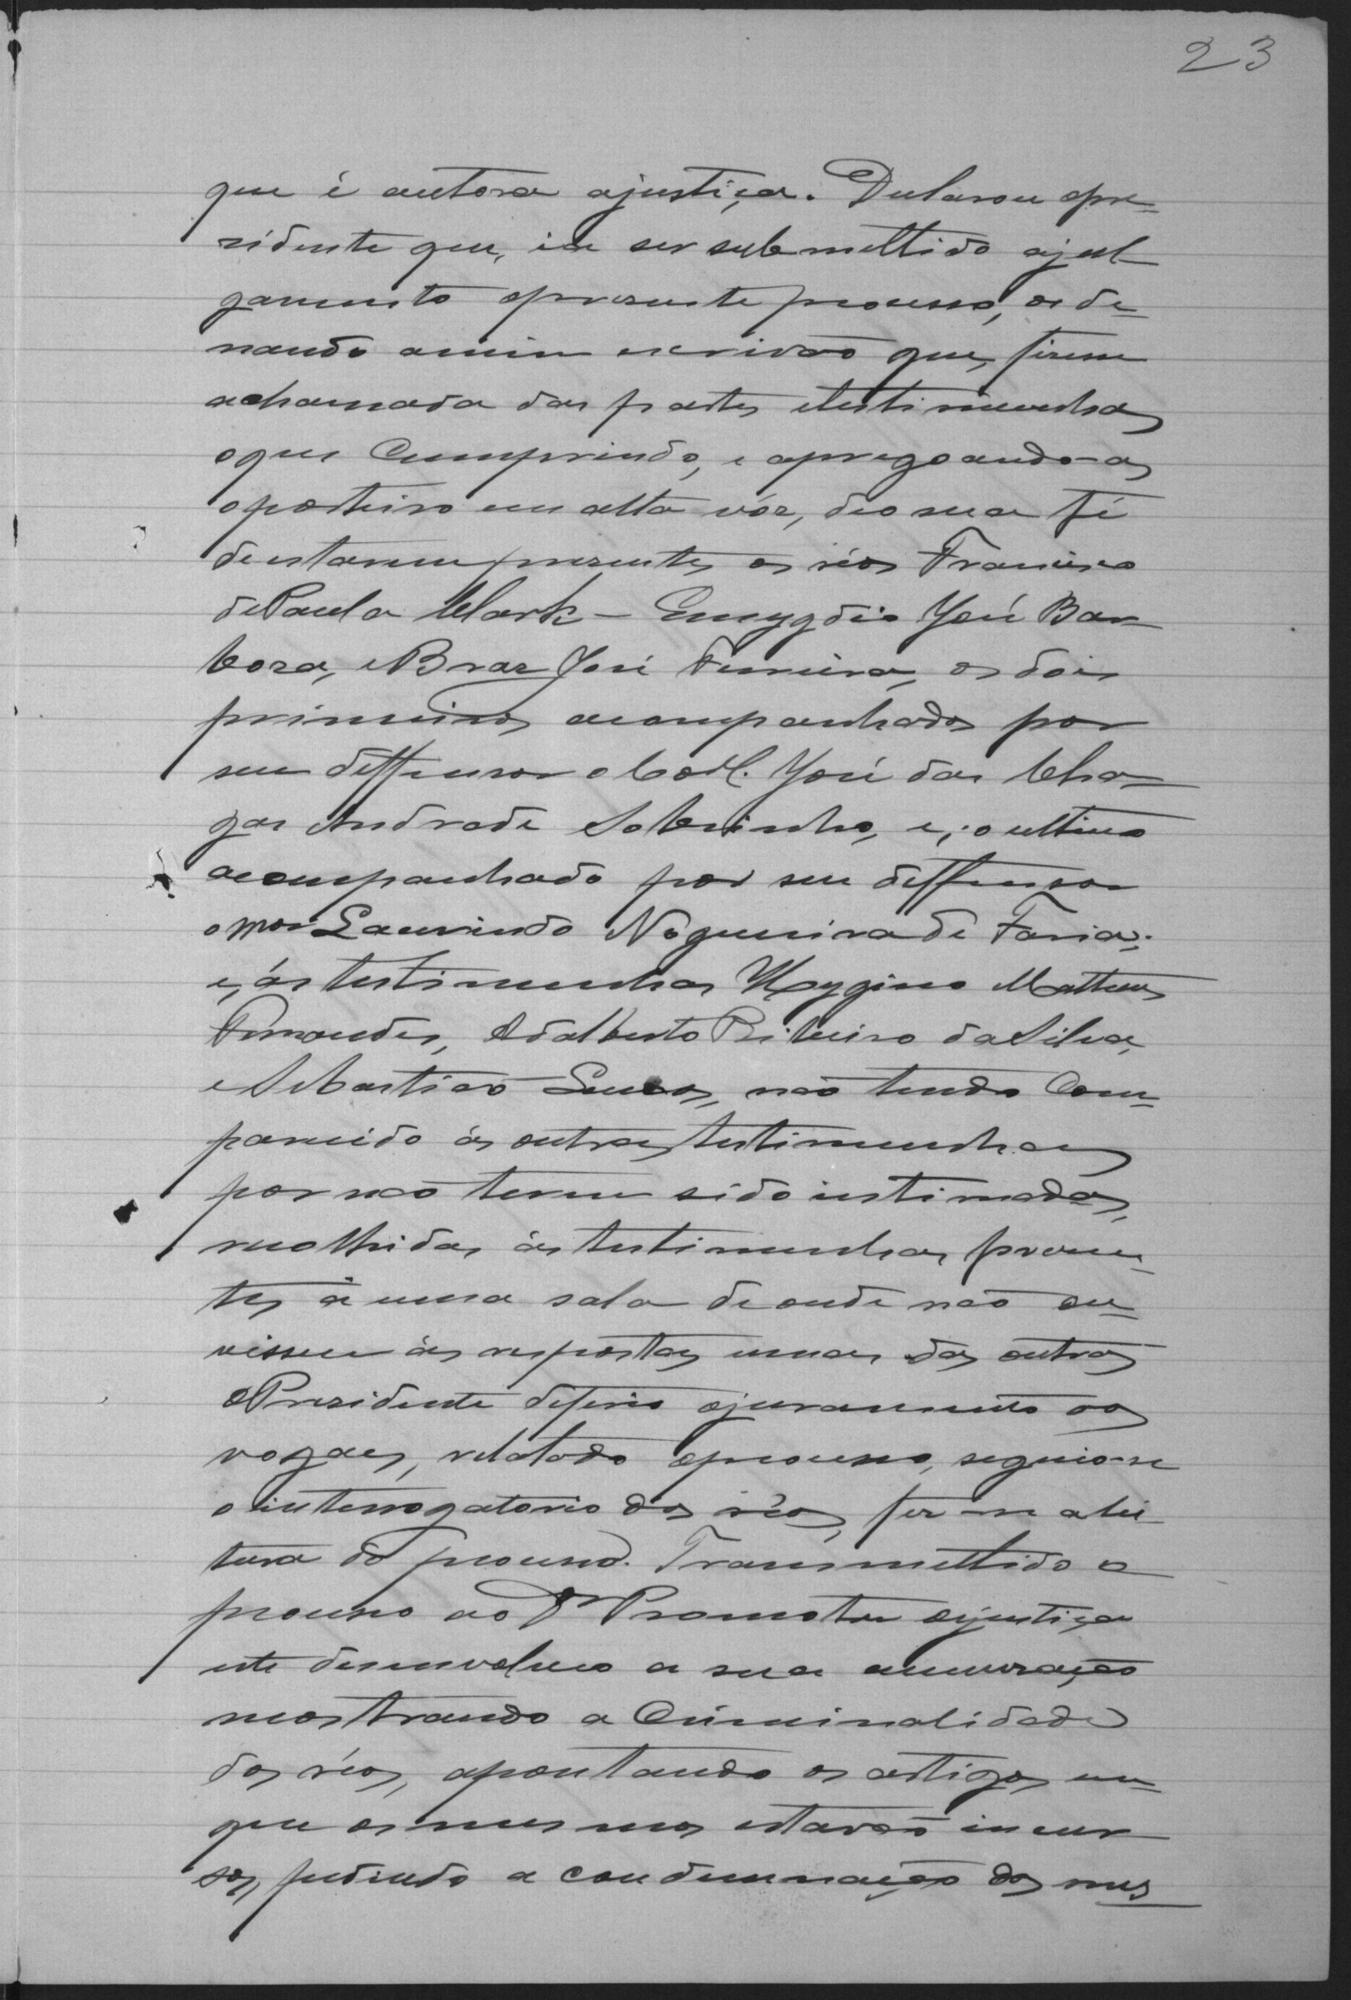 23
que é autora ajustiça. Declarou opre-
zidente que, ia ser submettido ajul-
gamento opresente processo, orde-
nando amim escrivão que, fizesse
achamada das partes etestimunhas
oque Cumprindo, e apregoando-as
oporteiro em alta vóz, deo sua fé
deestarem presentes os réos Francisco
dePaula Clark - Emygdio José Bar-
boza, eBraz José Ferreira, os dois
primeiros acompanhados por
seu deffensor o José das Cha-
gas Andrade Sobrinho, e, o ultimo
acompanhado por seu deffensor
o Laurindo Nogueira de Faria;
e, ás testimunhas Hygino Matheus
Fernandes, Adalberto Ribeiro da Silva,
e Sebastião Lucas, não tendo Com-
parecido ás outras testimunhas
por não terem sido intimadas,
recolhidas ás testimunhas prezen-
tes á uma sala de onde não ou-
vissem ás respostas umas das outras
oPrezidente deferio ojuramento aos
vogaes, relatado oprocesso, seguio-se
ointerrogatorio dos réos, fez-se alei-
tura do processo. Transmettido o
processo ao Dr Promotor dajustiça
este desenvolveo a sua accuzação
mostrando a Criminalidade
dos réos, apontando os artigos em-
que os mesmos estavão incur-
sos, pedindo a condemnação dos mes